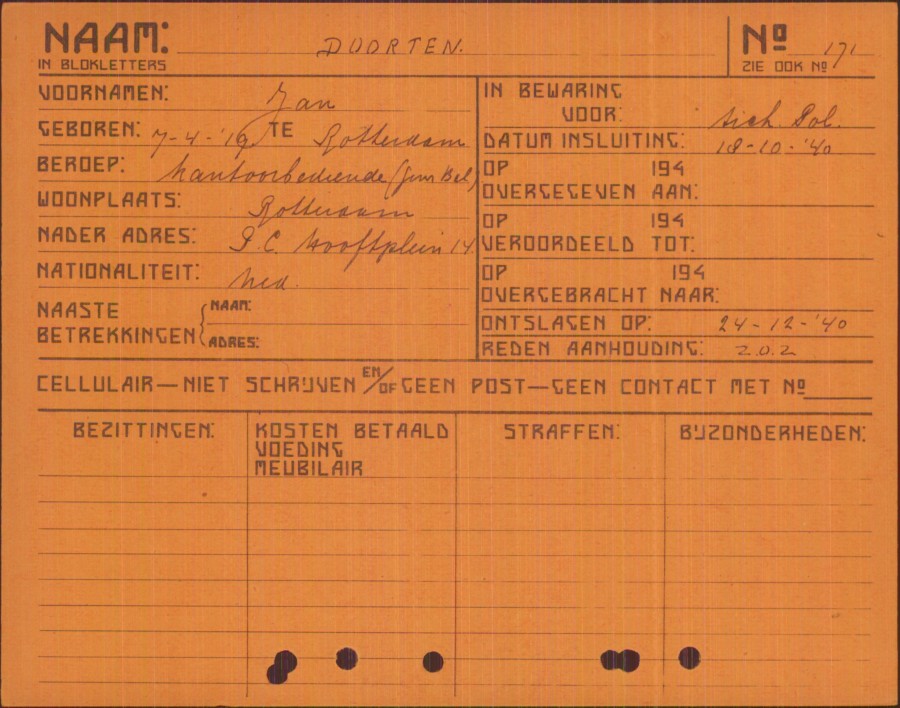 NAAM: DOORTEN.
IN BLOKLETTERS
Nº 171
ZIE OOK Nº
VOORNAMEN: Jan
GEBOREN: 7-4-'19 TE Rotterdam
BEROEP: Kantoorbediende
WOONPLAATS: Rotterdam
NADER ADRES: P.C. Hooftplein 14
NATIONALITEIT: Ned.
NAASTE BETREKKINGEN
NAAM:
ADRES:
IN BEWARING
VOOR: Sich. Pol.
DATUM INSLUITING: 18-10-'40
OP 194
OVERGEGEVEN AAN:
OP 194
VEROORDEELD TOT:
OP 194
OVERGEBRACHT NAAR:
ONTSLAGEN OP: 24-12-'40
REDEN AANHOUDING: 2.0.2
CELLULAIR—NIET SCHRIJVEN EN/OF GEEN POST—GEEN CONTACT MET Nº
BEZITTINGEN:
KOSTEN BETAALD
VOEDING
MEUBILAIR
STRAFFEN:
BIJZONDERHEDEN: